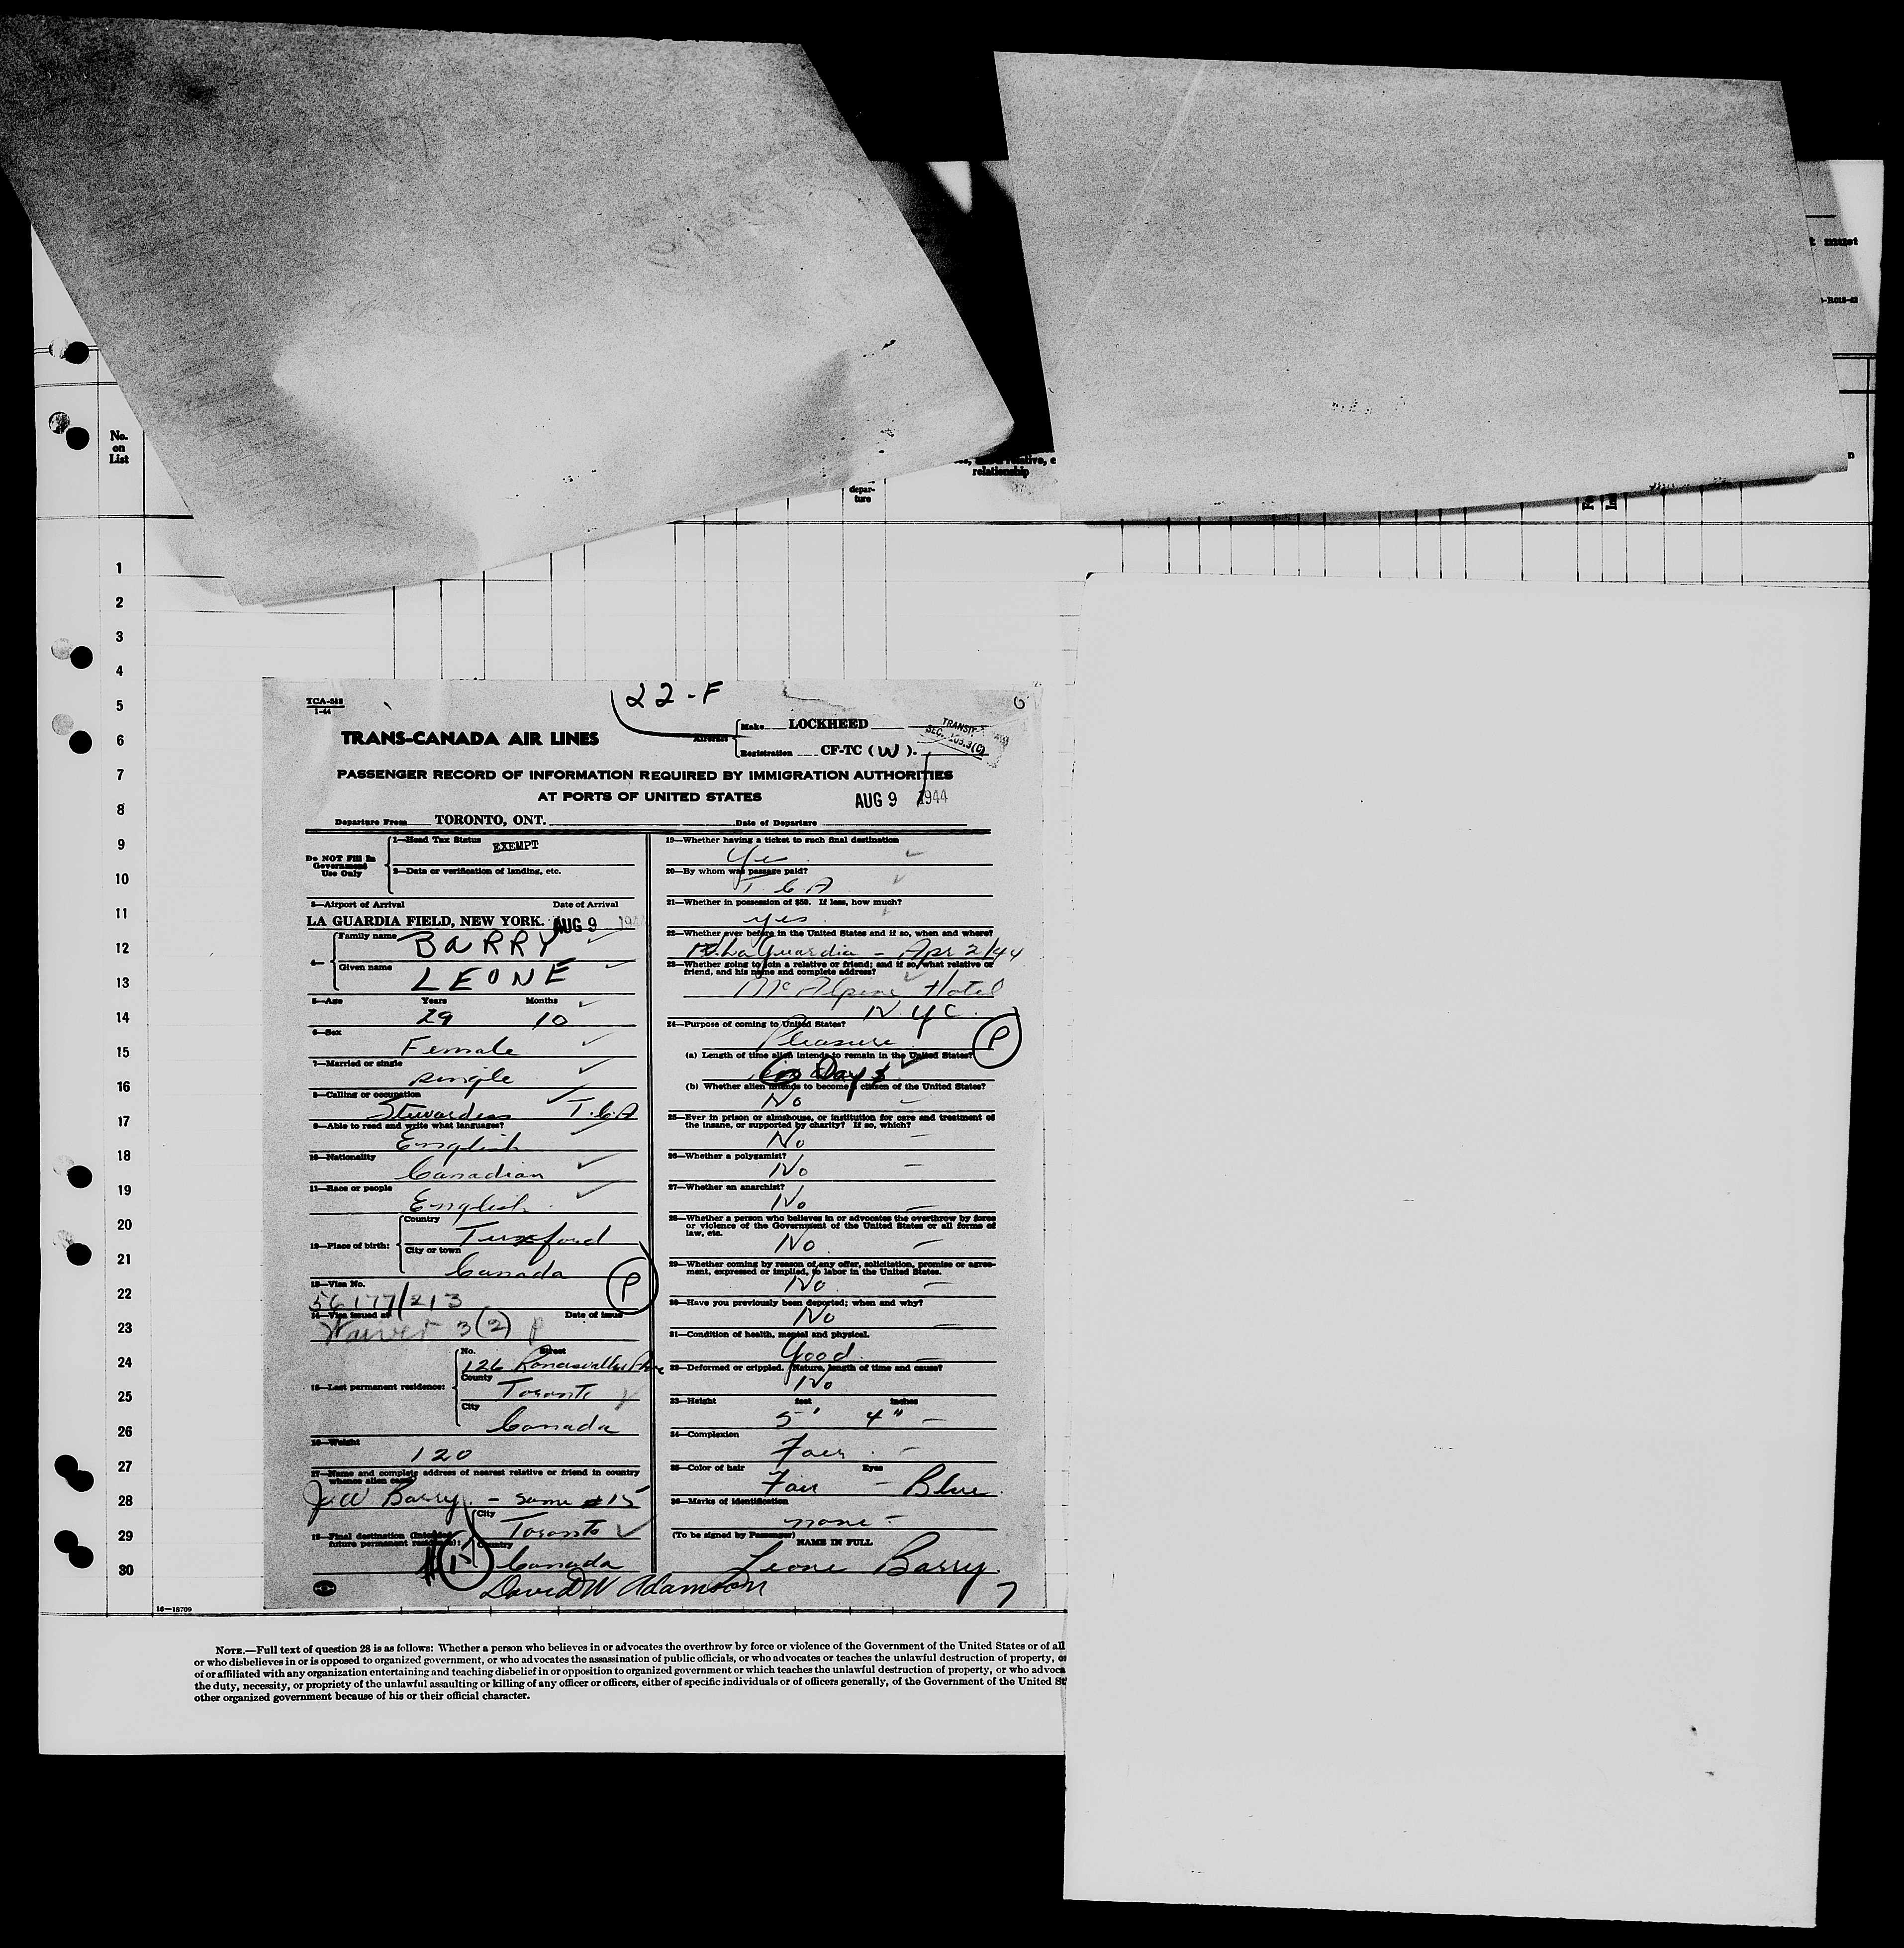 t must
-R018-42
No.
on
List
relative, e
relationship
depar-
ture
n
1
2
3
4
5
6
7
8
9
10
11
12
13
14
15
16
17
18
19
20
21
22
23
24
25
26
27
28
29
30
22-F
TCA-518
1-44
TRANS-CANADA AIR LINES
Aircraft
Make LOCKHEED
Registration CF-TC (W).
TRANSIT
SEC. 103.3(C)
PASSENGER RECORD OF INFORMATION REQUIRED BY IMMIGRATION AUTHORITIES
AT PORTS OF UNITED STATES
AUG 9 1944
Departure From TORONTO, ONT. Date of Departure
Do NOT Fill In
Government
Use Only
1—Head Tax Status EXEMPT
2—Data or verification of landing, etc.
3—Airport of Arrival Date of Arrival
LA GUARDIA FIELD, NEW YORK. AUG 9 194
4— Family name BARRY
Given name LEONE
5—Age Years Months
29 10
6—Sex
Female
7—Married or single
single
8—Calling or occupation
Stewardess T.C.A
9—Able to read and write what languages?
English
10—Nationality
Canadian
11—Race or people
English
12—Place of birth:
Country
Tuxford
City or town
Canada
P
13—Visa No.
56177/213
14—Visa issued at Date of issue
Waiver 3(2) P
15—Last permanent residence:
No. Street
126
County
Toronto
City
Canada
16—Weight
120
17—Name and complete address of nearest relative or friend in country
whence alien came:
J.W Barry - same #15
18—Final destination (Intended
future permanent residence):
City
Toronto
Country
#15 Canada
David W Adamson
19—Whether having a ticket to such final destination
Yes
20—By whom was passage paid?
T C A
21—Whether in possession of $50. If less, how much?
yes
22—Whether ever before in the United States and if so, when and where?
La Guardia - Apr 2/44
23—Whether going to join a relative or friend; and if so, what relative or
friend, and his name and complete address?
McAlpine Hotel
N.Y.C.
24—Purpose of coming to United States?
Pleasure
P
(a) Length of time alien intends to remain in the United States?
Days
(b) Whether alien intends to become citizen of the United States?
No
25—Ever in prison or almshouse, or institution for care and treatment of
the insane, or supported by charity? If so, which?
No
26—Whether a polygamist?
No
27—Whether an anarchist?
No
28—Whether a person who believes in or advocates the overthrow by force
or violence of the Government of the United States or all forms of
law, etc.
No
29—Whether coming by reason of any offer, solicitation, promise or agree-
ment, expressed or implied, to labor in the United States.
No
30—Have you previously been deported; when and why?
No
31—Condition of health, mental and physical.
Good
32—Deformed or crippled. Nature, length of time and cause?
No
33—Height feet inches
5' 4"
34—Complexion
Fair
35—Color of hair Eyes
Fair - Blue
36—Marks of identification
none
(To be signed by Passenger)
NAME IN FULL
Leone Barry
7
16—18709
NOTE.—Full text of question 28 is as follows: Whether a person who believes in or advocates the overthrow by force or violence of the Government of the United States or of all
or who disbelieves in or is opposed to organized government, or who advocates the assassination of public officials, or who advocates or teaches the unlawful destruction of property, or
of or affiliated with any organization entertaining and teaching disbelief in or opposition to organized government or which teaches the unlawful destruction of property, or who advoca
the duty, necessity, or propriety of the unlawful assaulting or killing of any officer or officers, either of specific individuals or of officers generally, of the Government of the United St
other organized government because of his or their official character.